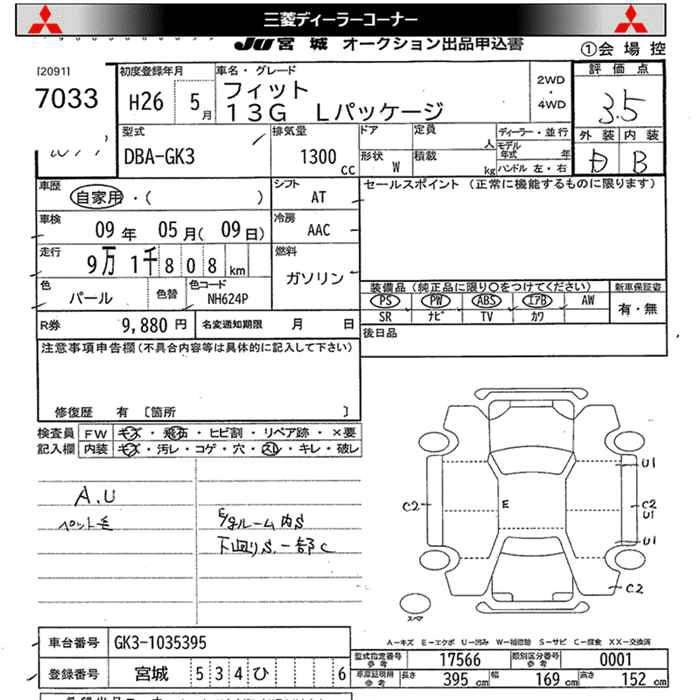 三菱ディーラーコーナー
JU宮城 オークション出品申込書
①会場控
[2091]
7033
初度登録年月
H26 5月
車名・グレード
フィット
13G Lパッケージ
2WD
・
4WD
評価点
3.5
外装 内装
B
型式
DBA-GK3
排気量
1300 cc
ドア
定員 人
ディーラー・並行
モデル年式 年
形状 W
積載 kg
ハンドル 左・右
車歴
自家用・( )
シフト
AT
セールスポイント (正常に機能するものに限ります)
車検
09年 05月(09日)
冷房
AAC
走行
9万1千808km
燃料
ガソリン
色
パール
色替
色コード
NH624P
装備品(純正品に限り〇をつけてください)
新車保証書
PS PW ABS エアB AW
有・無
SR ナビ TV カワ
R券 9,880円
名変通知期限 月 日
後日品
注意事項申告欄(不具合内容等は具体的に記入して下さい)
修復歴 有 [箇所 ]
検査員 FW キズ・飛石・ヒビ割・リペア跡・×要
記入欄 内装 キズ・汚レ・コゲ・穴・スレ・キレ・破レ
A.U
ペット毛
E/gルーム内S
下廻りS.一部C
U1
C2
E
C2
U1
U1
C2
スペア
A-キズ E-エクボ U-凹み W-補修跡 S-サビ C-腐食 XX-交換済
車台番号 GK3-1035395
登録番号 宮城 534ひ 6
型式指定番号 参考 17566
類別区分番号 参考 0001
車庫証明用 参考 長さ 395 cm 幅 169 cm 高さ 152 cm